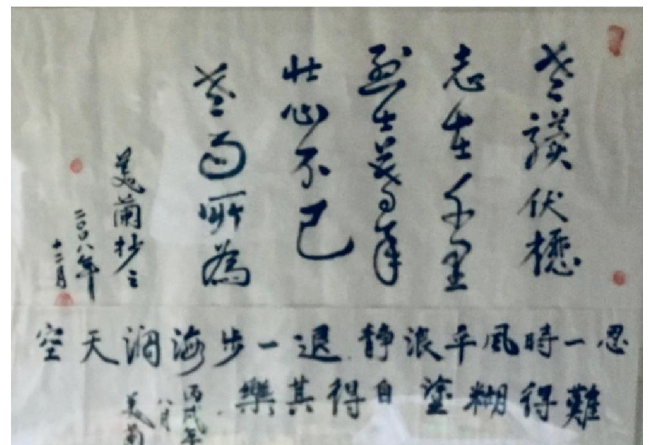 老驥伏櫪
志在千里
烈士暮年
壯心不已
老有所為
美蘭抄之
二〇〇八年
十二月
忍一時風平浪靜.退一步海濶天空
難得糊塗自得其樂.
丙戌年
八月
美蘭